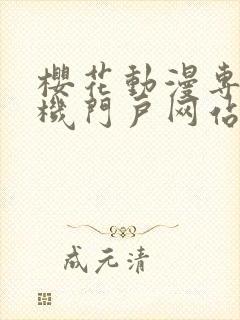 櫻花動漫專
機門戶网佔
成元清